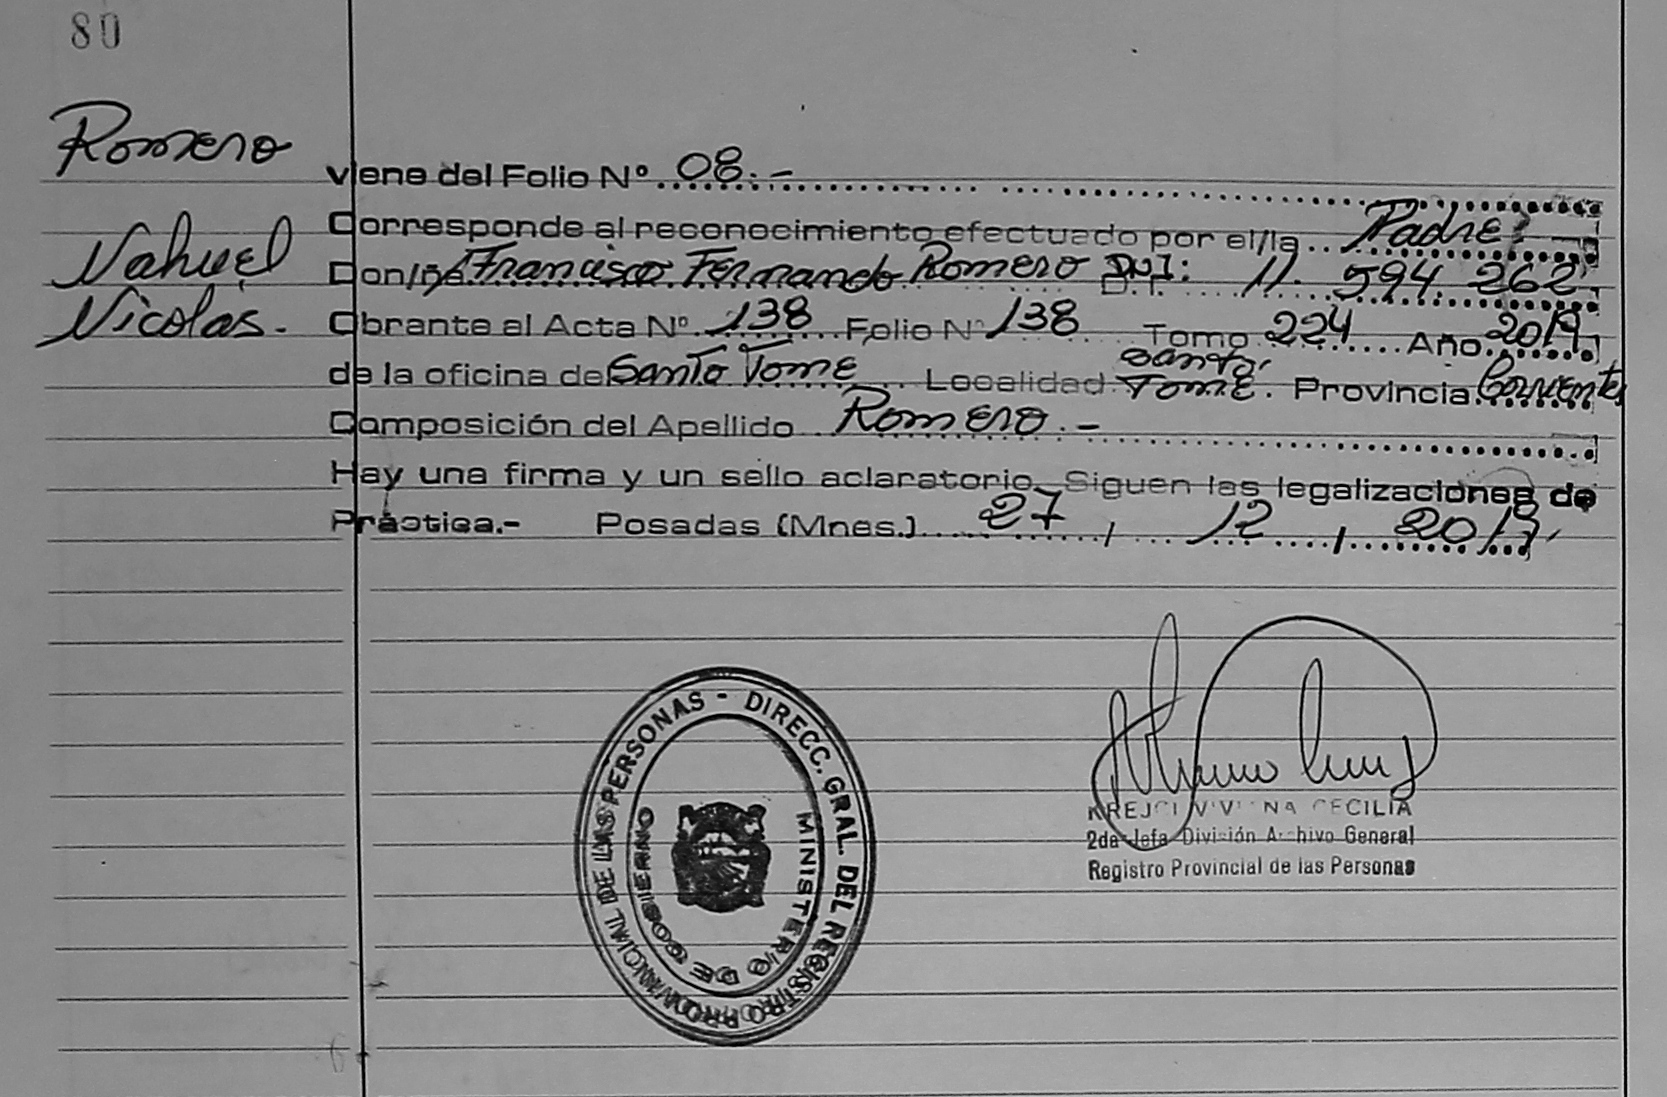 80
Romero
Nahuel
Nicolás.-
viene del Folio Nº 08.-
Corresponde al reconocimiento efectuado por el/la Padre:
Don/ña Francisco Fernando Romero DNI: 11.594.262.
Obrante al Acta Nº 138 Folio Nº 138 Tomo 224 Año 2019
de la oficina de Santo Tome Localidad Santo Tomé. Provincia Corrientes
Composición del Apellido Romero.-
Hay una firma y un sello aclaratorio. Siguen las legalizaciones de
Práctica.- Posadas (Mnes.) 27 / 12 / 2019.
DIRECC. GRAL. DEL REGISTRO PROVINCIAL DE LAS PERSONAS -
MINISTERIO DE GOBIERNO
KREJCI VIVIANA CECILIA
2da Jefa División Archivo General
Registro Provincial de las Personas